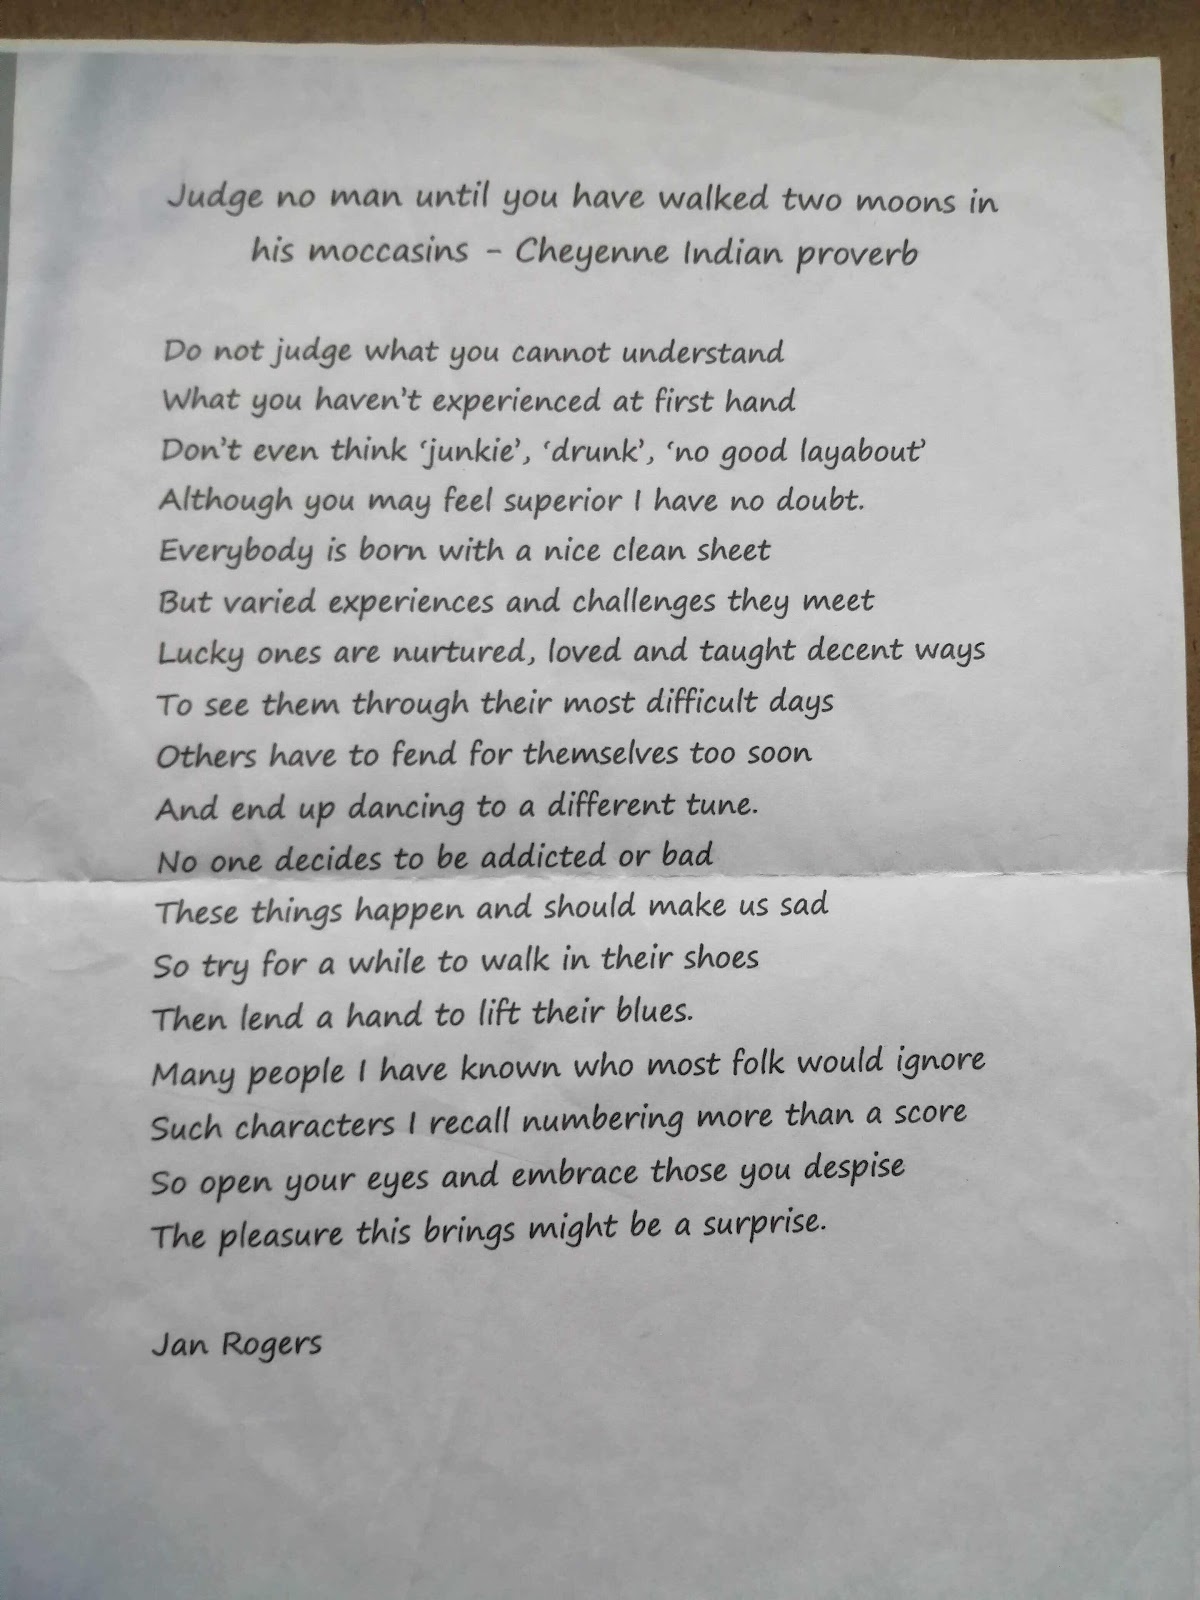 Judge no man until you have walked two moons in
his moccasins – Cheyenne Indian proverb
Do not judge what you cannot understand
What you haven't experienced at first hand
Don't even think ‘junkie’, ‘drunk’, ‘no good layabout’
Although you may feel superior I have no doubt.
Everybody is born with a nice clean sheet
But varied experiences and challenges they meet
Lucky ones are nurtured, loved and taught decent ways
To see them through their most difficult days
Others have to fend for themselves too soon
And end up dancing to a different tune.
No one decides to be addicted or bad
These things happen and should make us sad
So try for a while to walk in their shoes
Then lend a hand to lift their blues.
Many people I have known who most folk would ignore
Such characters I recall numbering more than a score
So open your eyes and embrace those you despise
The pleasure this brings might be a surprise.
Jan Rogers